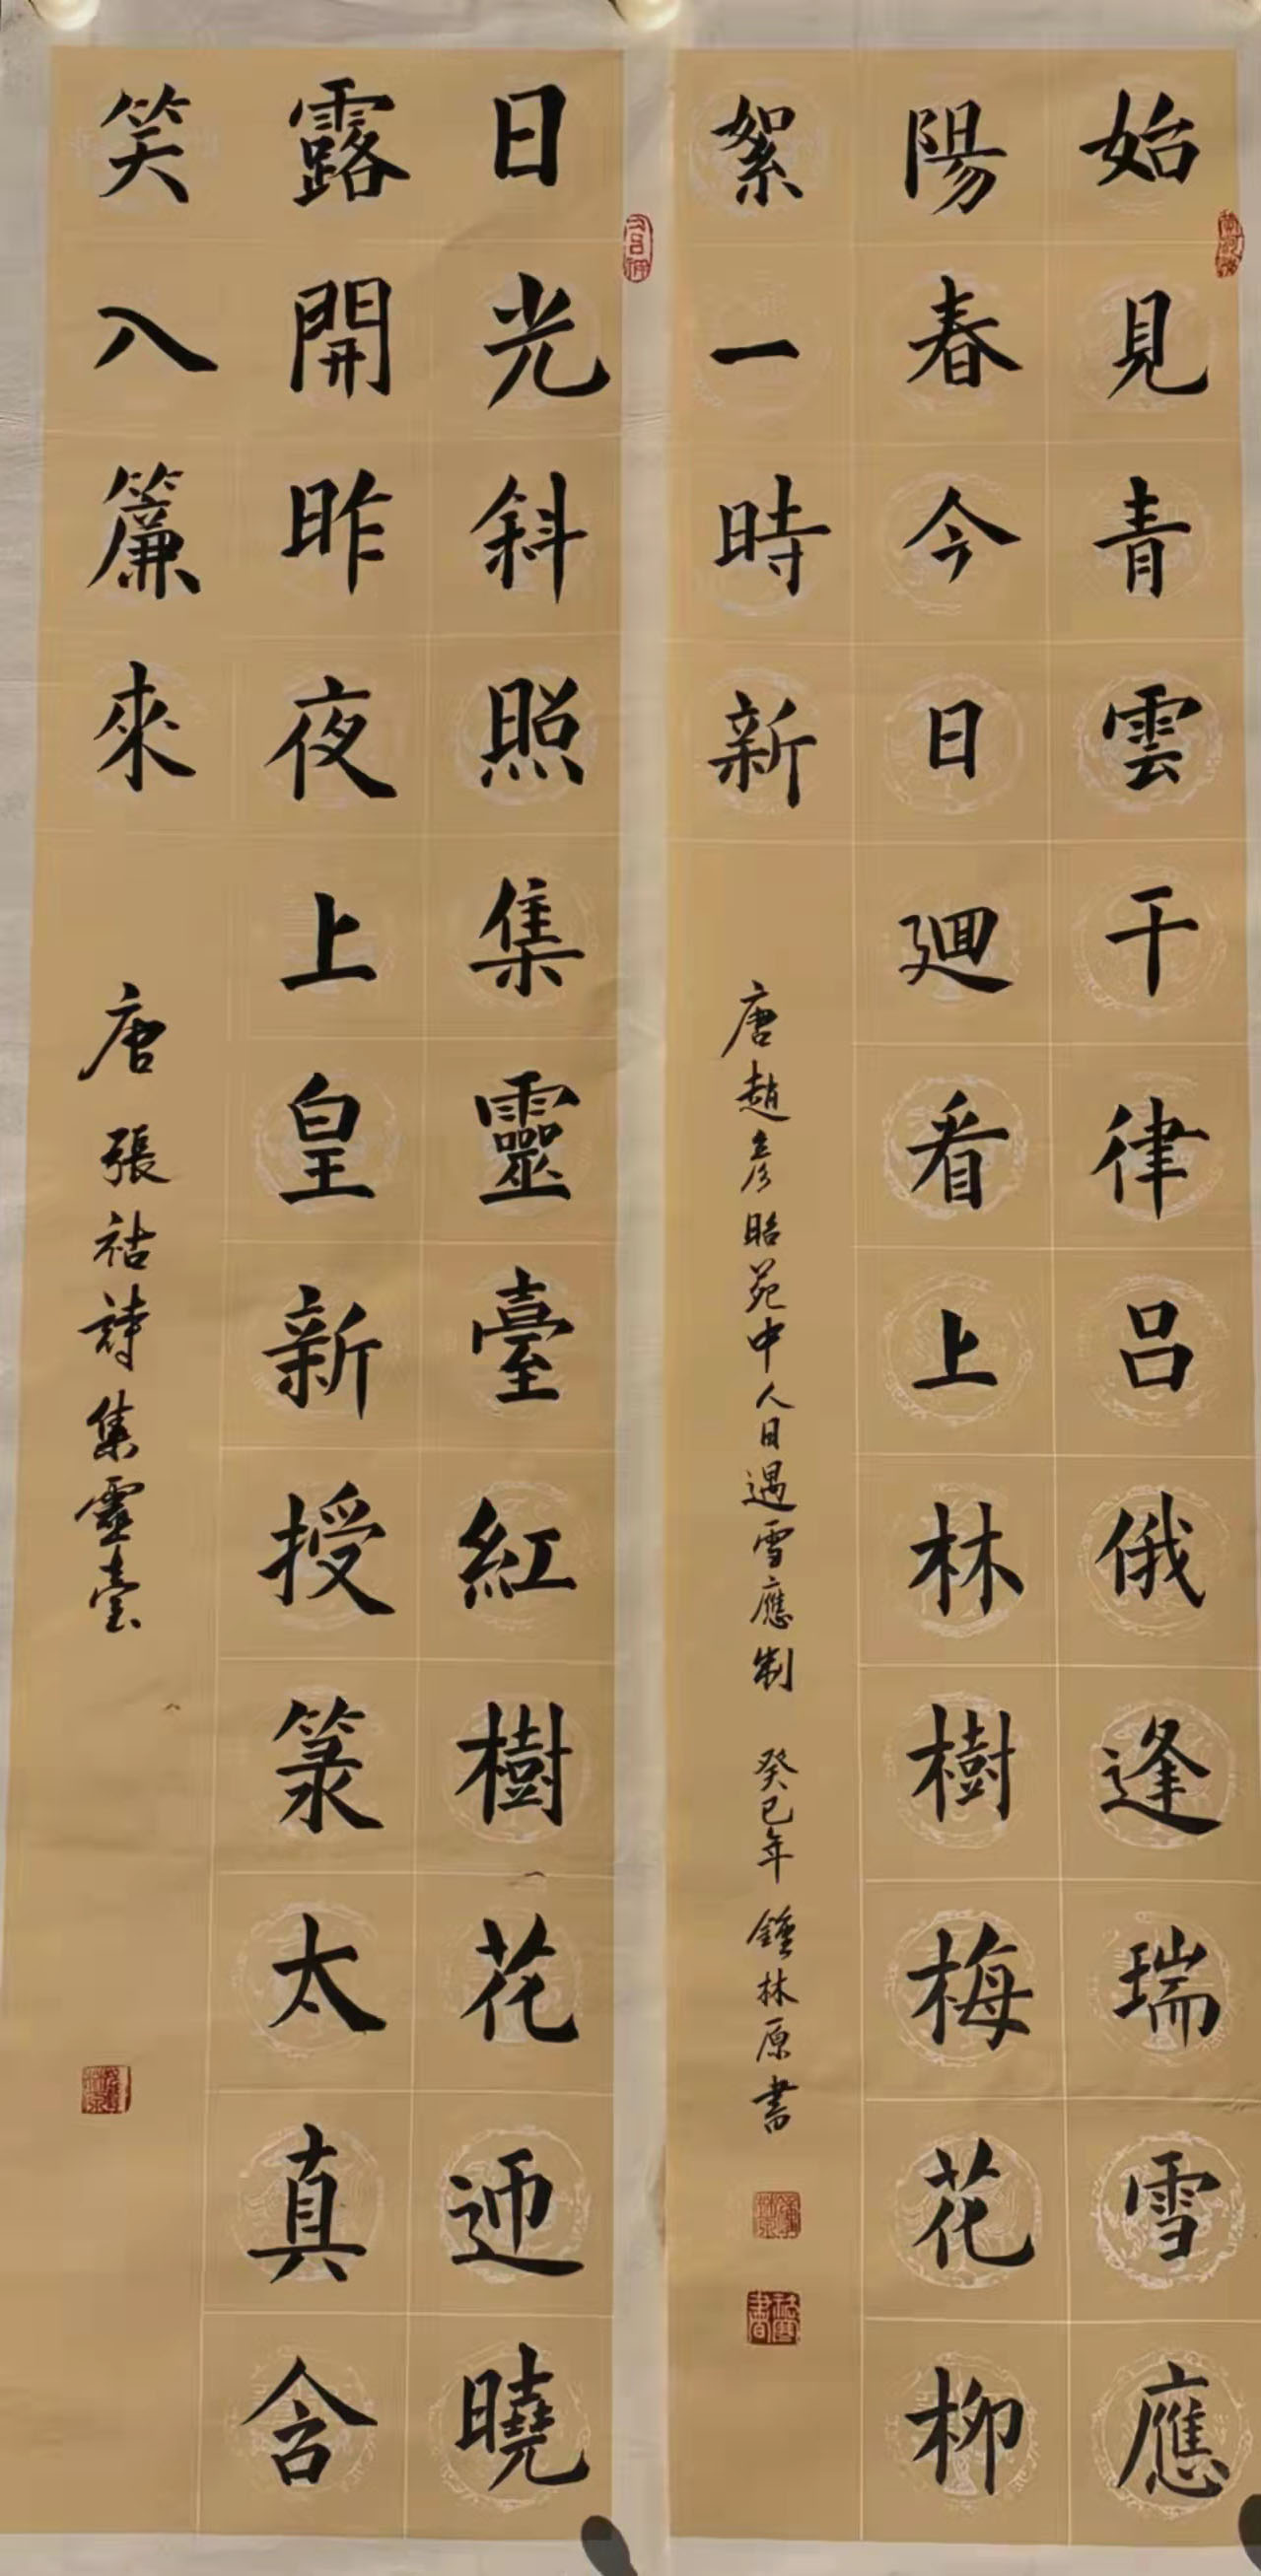 始見青雲干律呂俄逢瑞雪應
陽春今日廻看上林樹梅花柳
絮一時新
唐趙彦昭苑中人日遇雪應制 癸巳年 鍾林原書
日光斜照集靈臺紅樹花迊曉
露開昨夜上皇新授籙太真含
笑入簾來
唐張祜詩集靈臺